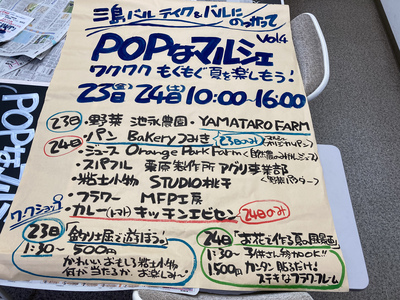 三島バル テイクとバルに
のっかって
POPなマルシェ Vol.4
ワクワク もくもぐ 夏を楽しもう!
23(金) 24(土) 10:00〜16:00
23日 ・野菜 池永農園・YAMATARO FARM
24日 ・パン Bakeryつみき 23日のみ
・ジュース Orange Park Farm
・スパフル 栗原製作所 アグリ事業部
・粘土小物 STUDIO桃子
・フラワー MFPI房
・カレー(レトルト) キッチンエビセン 24日のみ
ワークショップ
23日 「釣り堀で遊ぼう!」
1:30〜 500円
かわいいおもしろ粘土小物
何が当たるか お楽しみ〜
24日 「お花で作る夏の風景画」
1:30〜 子供さん参加OK!!
1500円 カンタン 貼るだけ!
ステキなフラワーフレーム
POPなマル